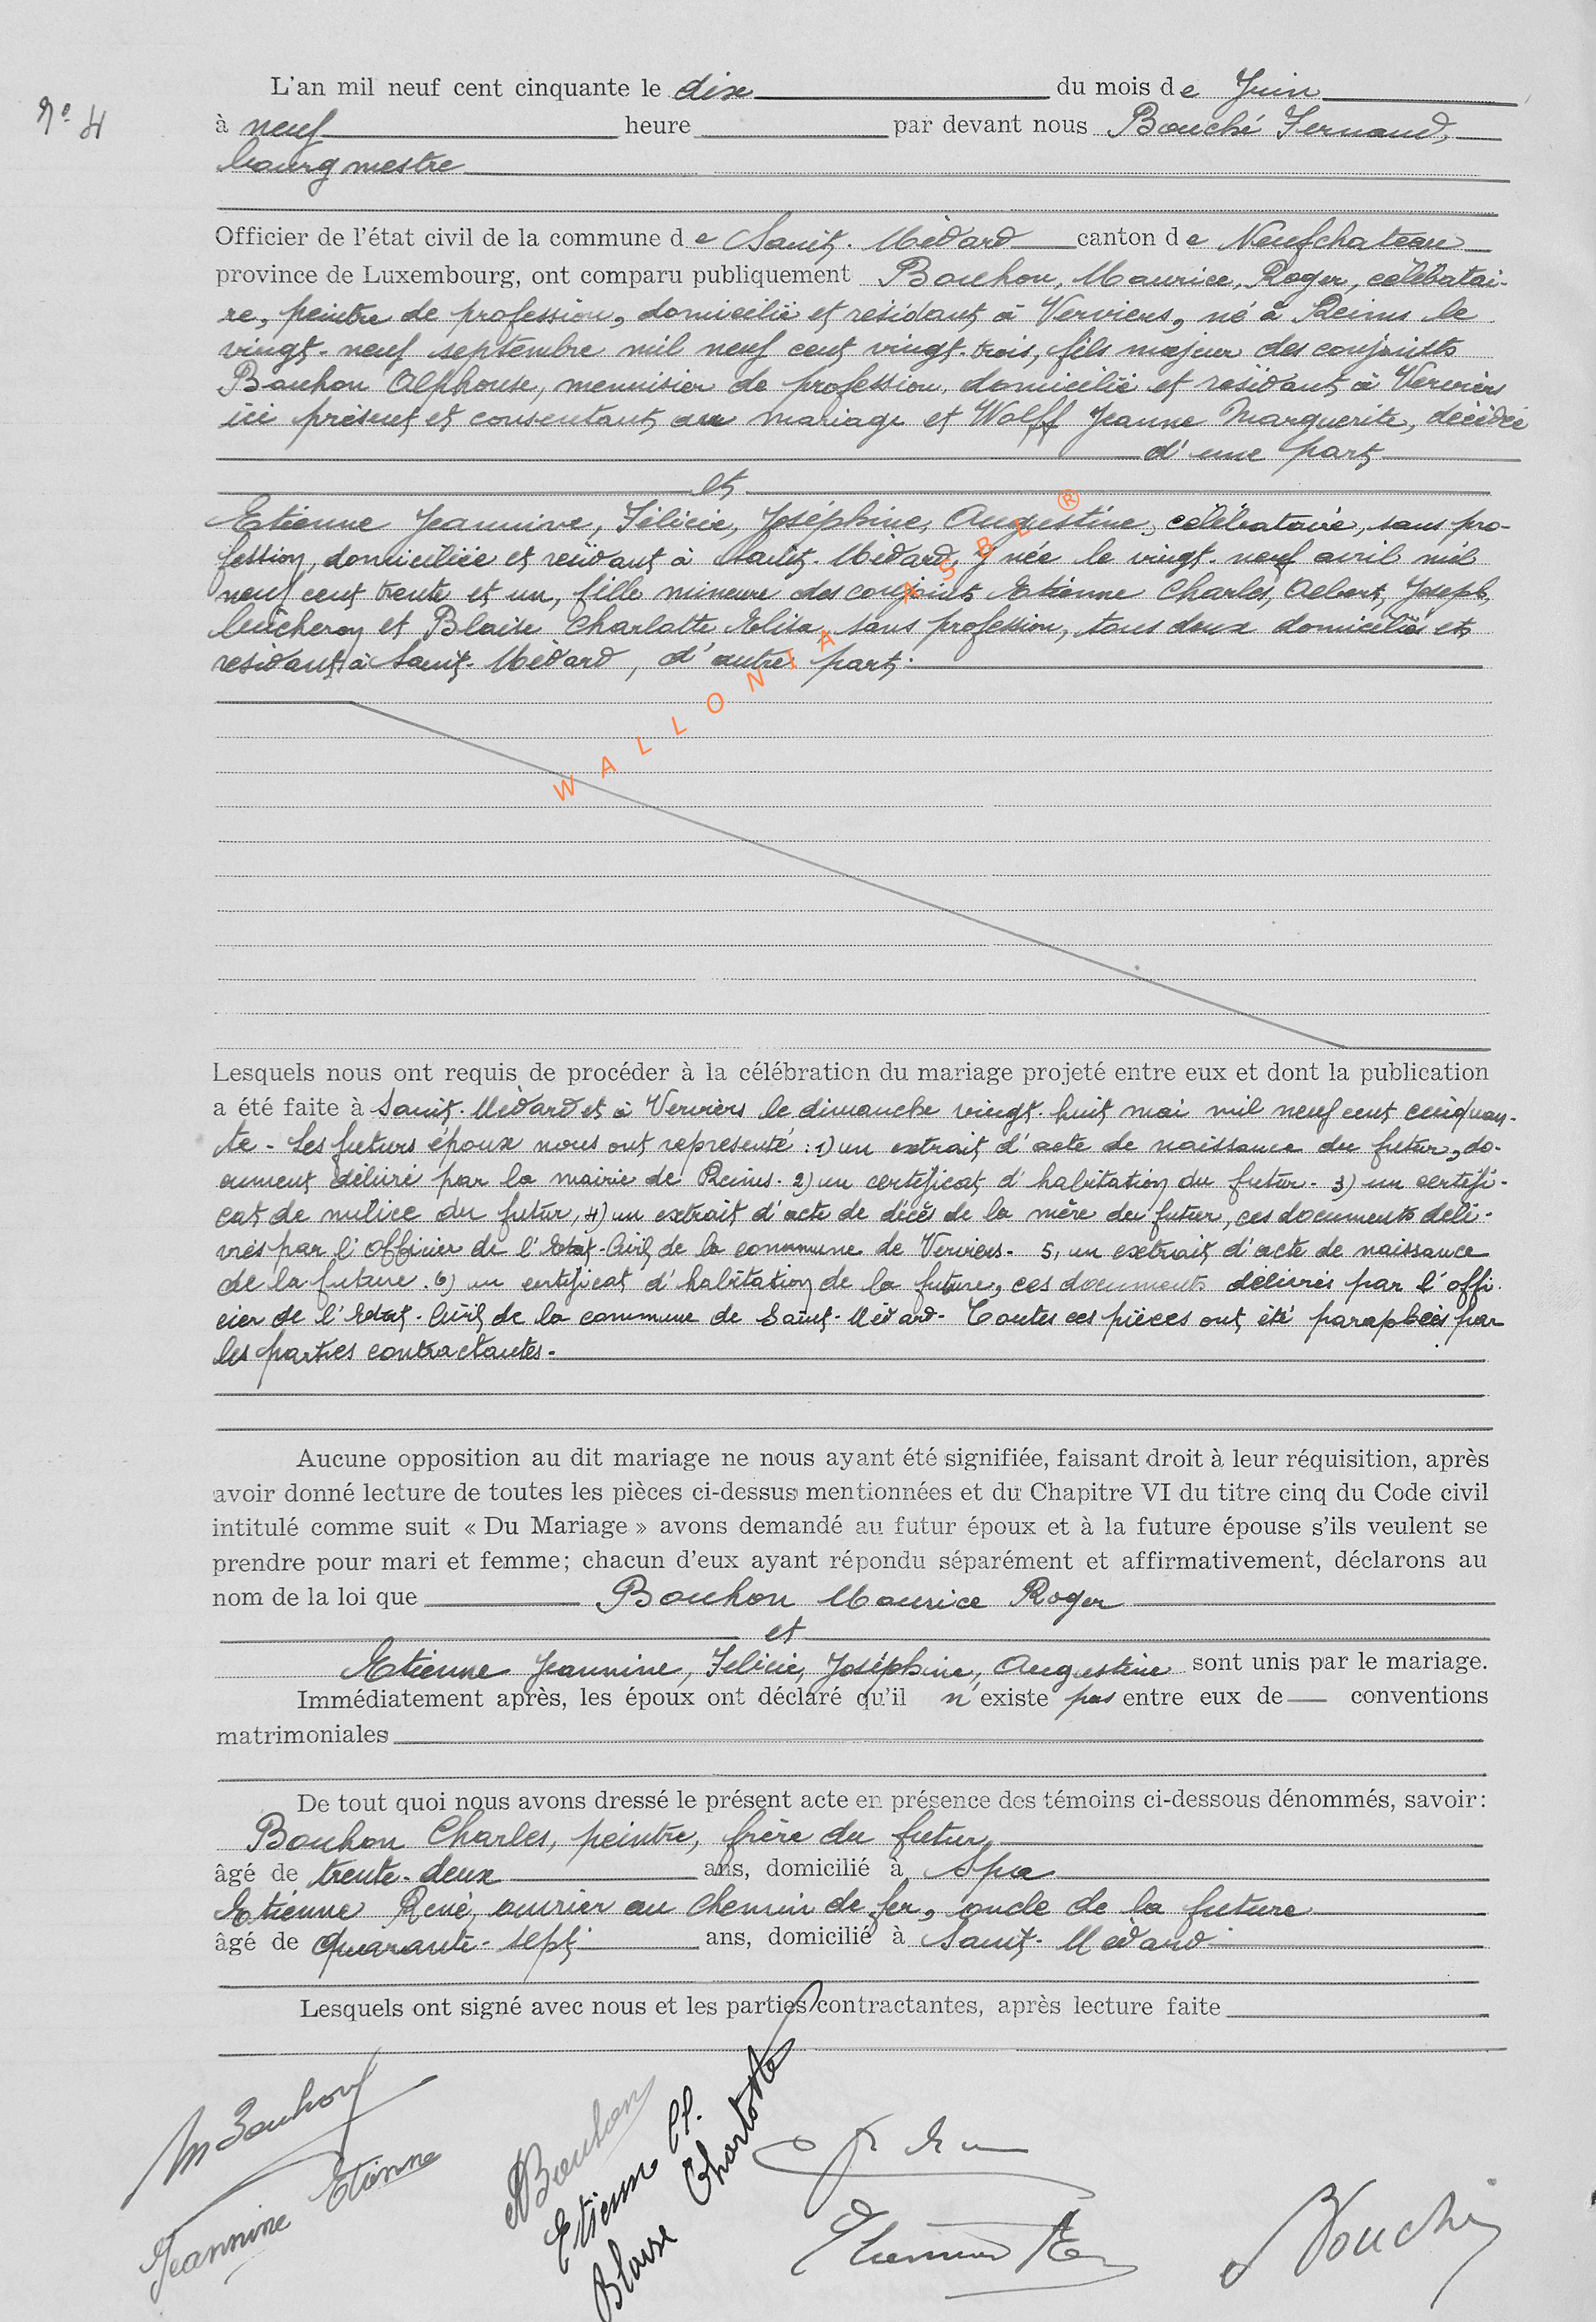 N° 4
L'an mil neuf cent cinquante le dix du mois de Juin
à neuf heure par devant nous Bouché Fernand,
bourgmestre
Officier de l'état civil de la commune de Saint-Médard canton de Neufchateau
province de Luxembourg, ont comparu publiquement Bouhon, Maurice, Roger, célibatai-
re, peintre de profession, domicilié et résidant à Verviers, né à Reims le
vingt-neuf septembre mil neuf cent vingt-trois, fils majeur des conjoints
Bouhon Alphonse, menuisier de profession, domicilié et résidant à Verviers
ici présent et consentant au mariage et Wolff Jeanne Marguerite, décédée
d'une part
et
Etienne Jeannine, Félicie, Joséphine, Augustine, célibataire, sans pro-
fession, domiciliée et résidant à Saint-Médard, y née le vingt-neuf avril mil
neuf cent trente et un, fille mineure des conjoints Etienne Charles, Albert, Joseph,
bûcheron et Blaise Charlotte Elisa, sans profession, tous deux domiciliés et
résidant à Saint-Médard, d'autre part.
WALLONIA ASBL ®
Lesquels nous ont requis de procéder à la célébration du mariage projeté entre eux et dont la publication
a été faite à Saint-Médard et à Verviers le dimanche vingt-huit mai mil neuf cent cinquan-
te - Les futurs époux nous ont representé : 1) un extrait d'acte de naissance du futur, do-
cument délivré par la mairie de Reims. 2) un certificat d'habitation du futur - 3) un certifi-
cat de milice du futur, 4) un extrait d'acte de décès de la mère du futur, ces documents déli-
vrés par l'officier de l'Etat-Civil de la commune de Verviers - 5, un extrait d'acte de naissance
de la future. 6) un certificat d'habitation de la future, ces documents délivrés par l'offi-
cier de l'Etat-Civil de la commune de Saint-Médard - Toutes ces pièces ont été paraphées par
les parties contractantes.
Aucune opposition au dit mariage ne nous ayant été signifiée, faisant droit à leur réquisition, après
avoir donné lecture de toutes les pièces ci-dessus mentionnées et du Chapitre VI du titre cinq du Code civil
intitulé comme suit « Du Mariage » avons demandé au futur époux et à la future épouse s'ils veulent se
prendre pour mari et femme; chacun d'eux ayant répondu séparément et affirmativement, déclarons au
nom de la loi que Bouhon Maurice Roger
et
Etienne Jeannine, Félicie, Joséphine, Augustine sont unis par le mariage.
Immédiatement après, les époux ont déclaré qu'il n'existe pas entre eux de conventions
matrimoniales
De tout quoi nous avons dressé le présent acte en présence des témoins ci-dessous dénommés, savoir:
Bouhon Charles, peintre, frère du futur,
âgé de trente-deux ans, domicilié à Spa
Etienne René, ouvrier au chemin de fer, oncle de la future
âgé de quarante-sept ans, domicilié à Saint-Médard
Lesquels ont signé avec nous et les parties contractantes, après lecture faite
M Bouhon
Jeannine Etienne
A Bouhon
Etienne Ch.
Blaise Charlotte
Etienne
Bouché